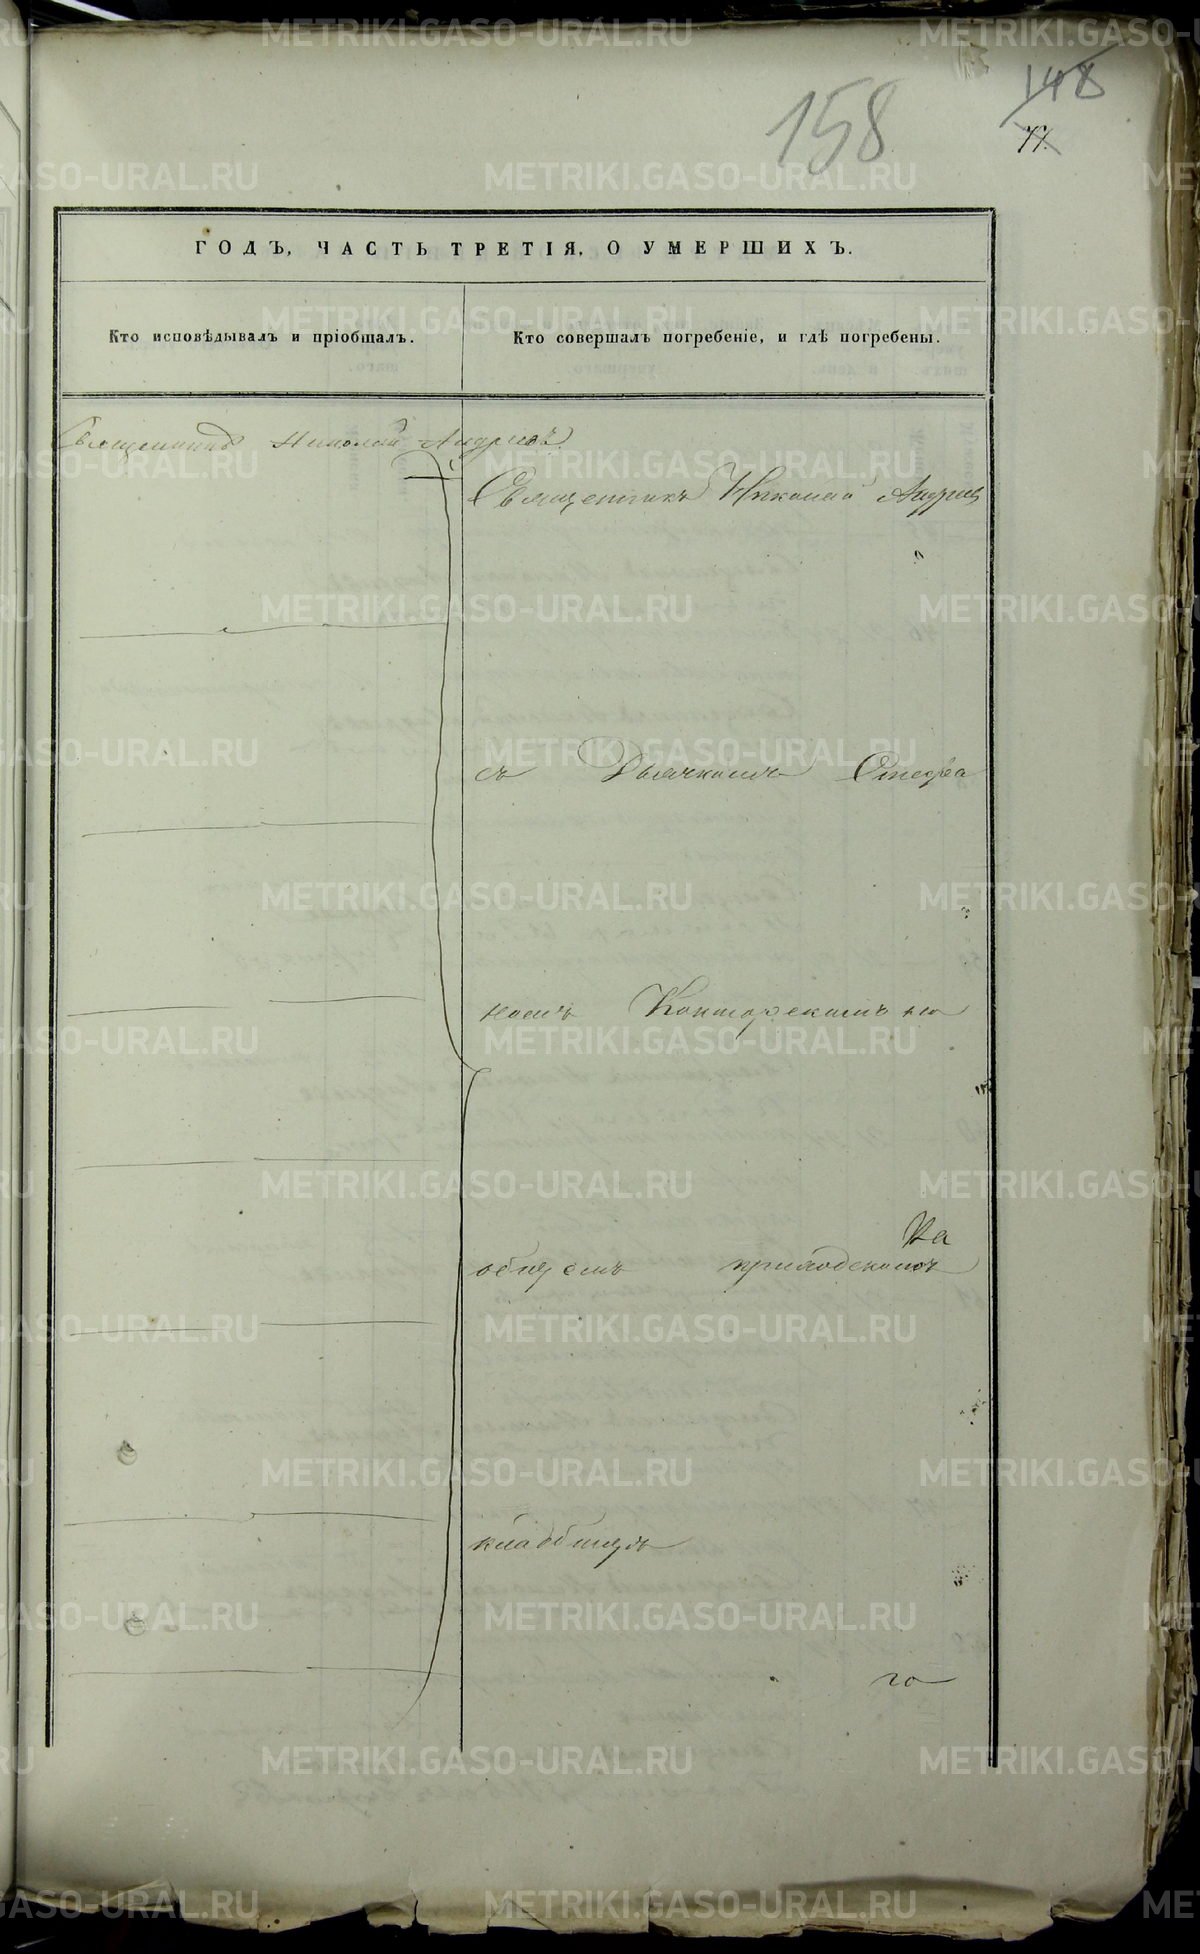 158
148
77.
ГОДЪ, ЧАСТЬ ТРЕТІЯ, О УМЕРШИХЪ.
Кто исповѣдывалъ и пріобщалъ.
Кто совершалъ погребеніе, и гдѣ погребены.
Священникъ Николай
Священникъ Николай
съ Дьячкомъ Стефа
номъ Конторскимъ
на
общемъ приходскомъ
кладбищѣ
го
METRIKI.GASO-URAL.RU